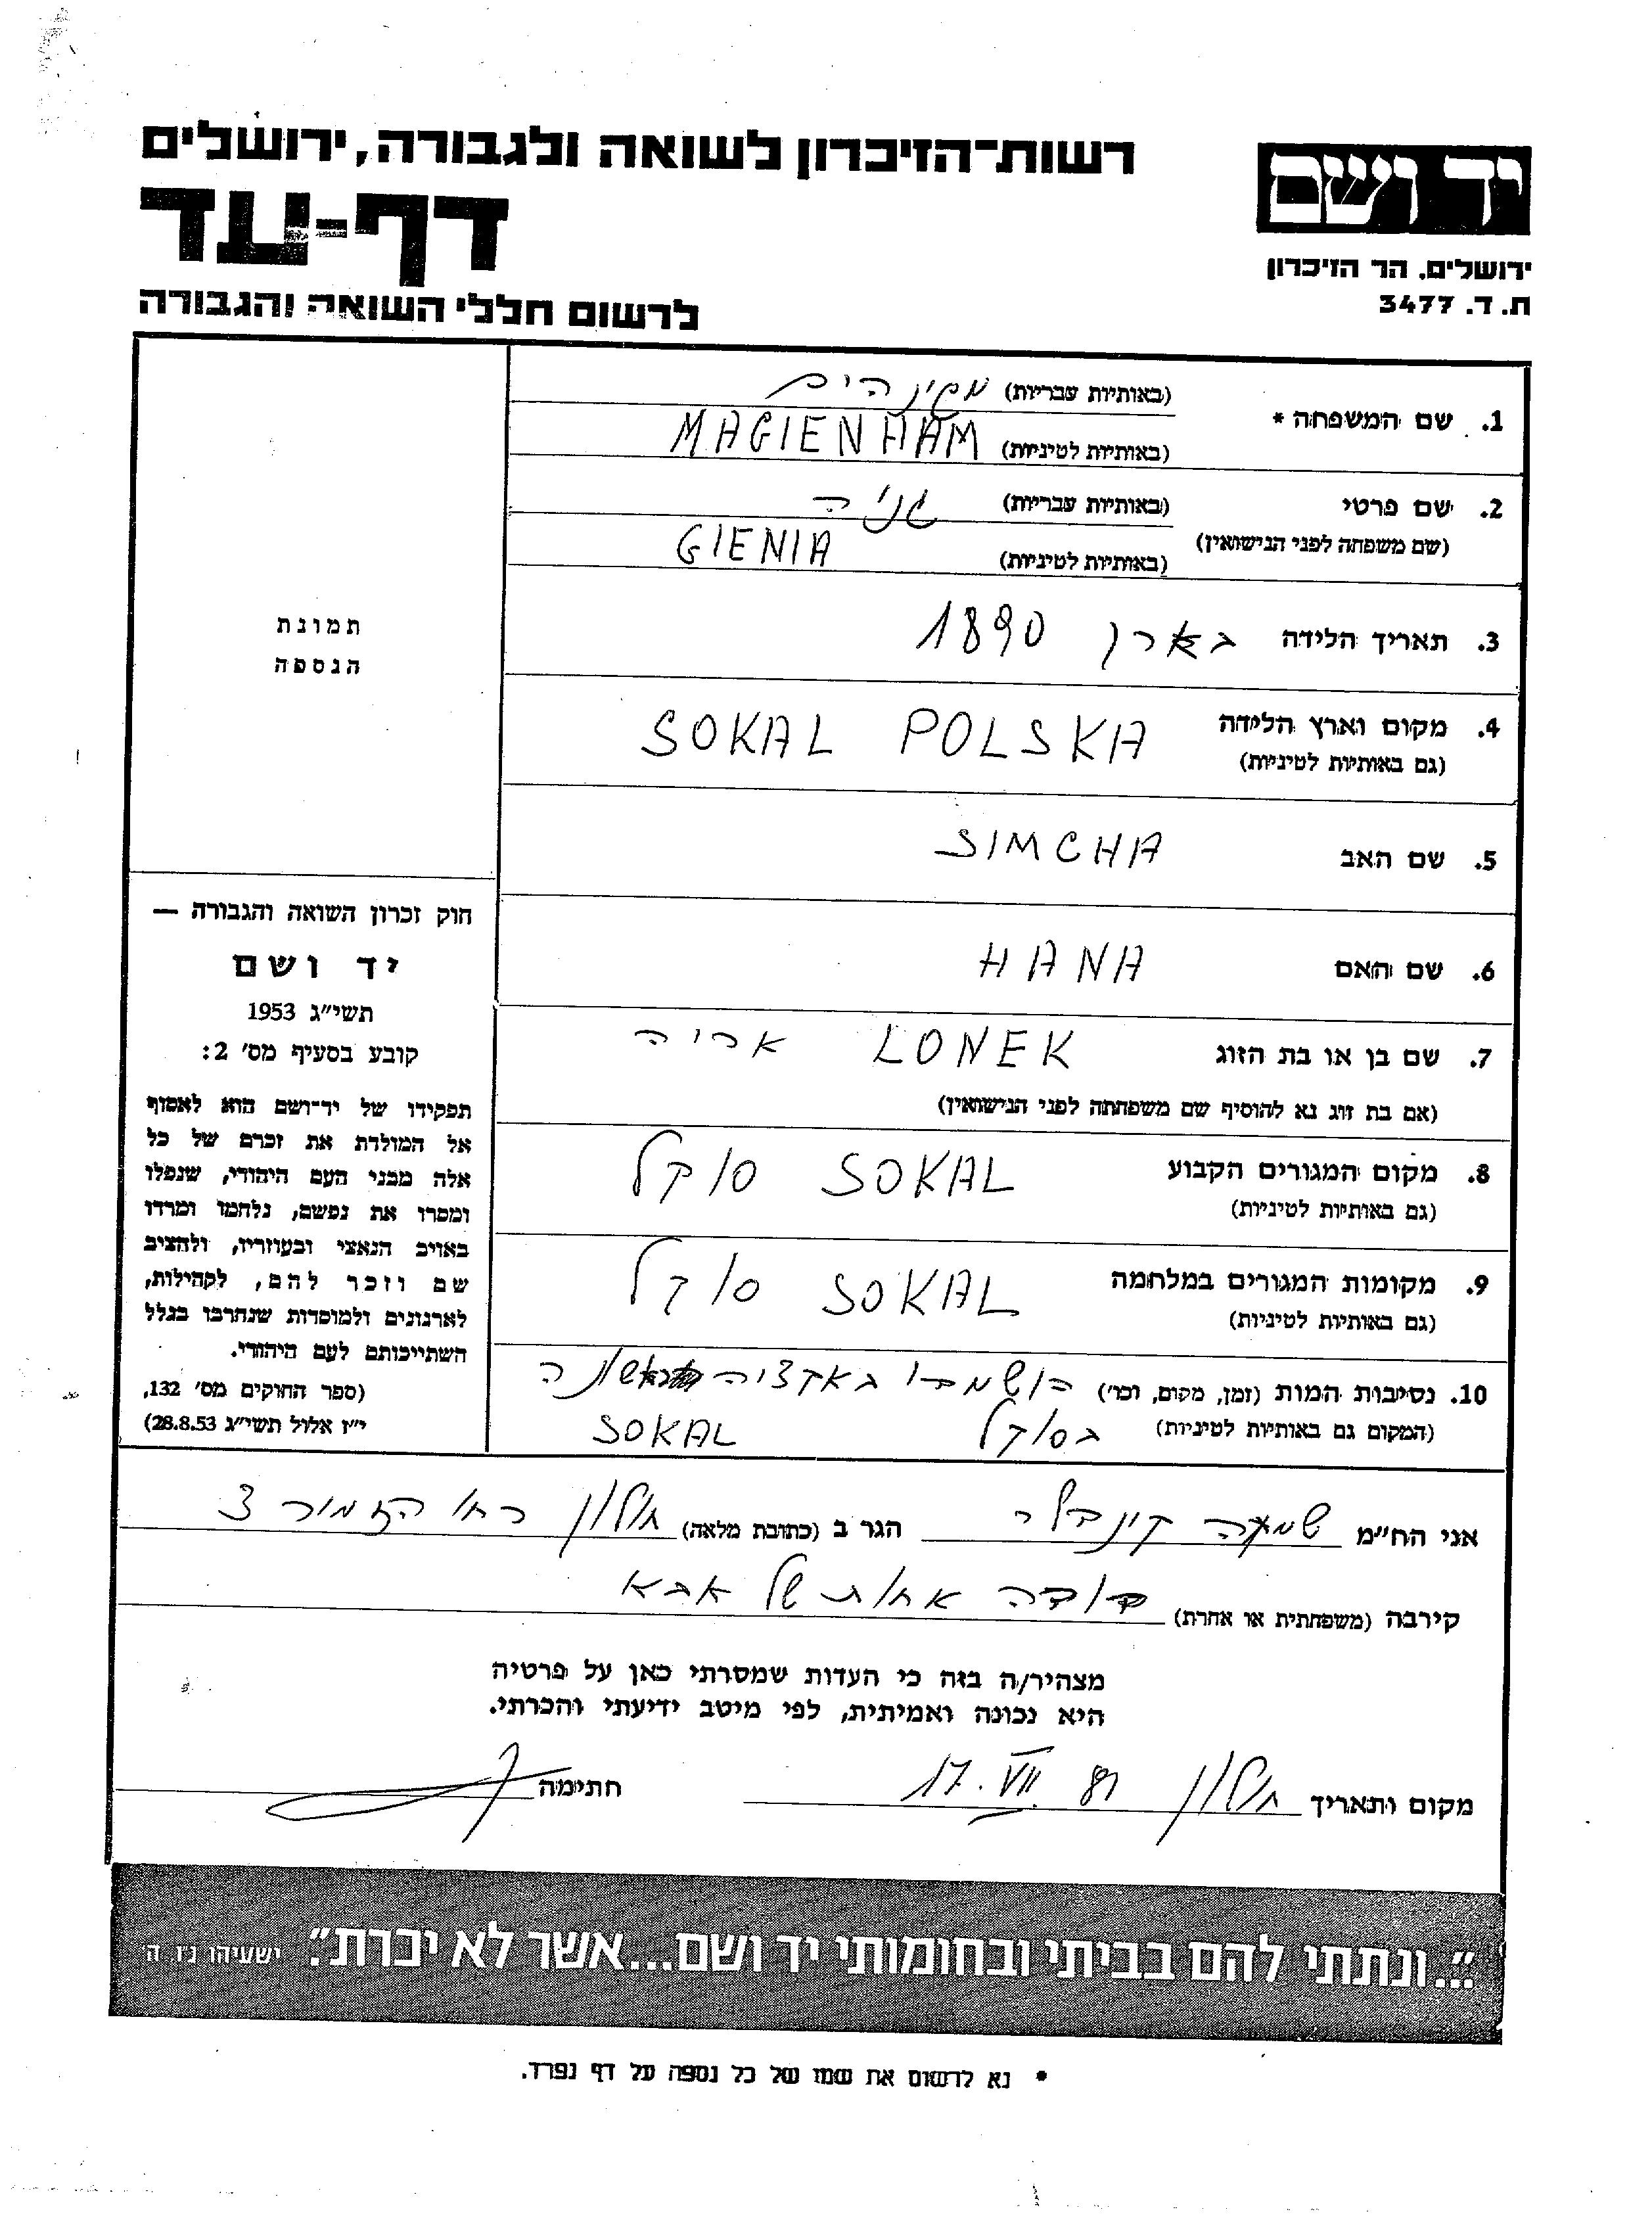 רשות־הזיכרון לשואה ולגבורה, ירושלים
דף-עד
לרשום חללי השואה והגבורה
יד ושם
ירושלים, הר הזיכרון
ת.ד. 3477
1. שם המשפחה * (באותיות עבריות)
(באותיות לטיניות) MAGIENHAM
2. שם פרטי (באותיות עבריות) גניה
(שם משפחה לפני הנישואין) (באותיות לטיניות) GIENIA
3. תאריך הלידה בארך 1890
4. מקום וארץ הלידה SOKAL POLSKA
(גם באותיות לטיניות)
5. שם האב SIMCHA
6. שם האם HANA
7. שם בן או בת הזוג LONEK אריה
(אם בת זוג נא להוסיף שם משפחתה לפני הנישואין)
8. מקום המגורים הקבוע SOKAL סוקל
(גם באותיות לטיניות)
9. מקומות המגורים במלחמה SOKAL סוקל
(גם באותיות לטיניות)
10. נסיבות המות (זמן, מקום, וכו') הושמדו באקציה ראשונה
(המקום גם באותיות לטיניות) בסוקל SOKAL
תמונת
הנספה
חוק זכרון השואה והגבורה —
יד ושם
תשי״ג 1953
קובע בסעיף מס' 2:
תפקידו של יד־ושם הוא לאסוף
אל המולדת את זכרם של כל
אלה מבני העם היהודי, שנפלו
ומסרו את נפשם, נלחמו ומרדו
באויב הנאצי ובעוזריו, ולהציב
שם וזכר להם, לקהילות,
לארגונים ולמוסדות שנחרבו בגלל
השתייכותם לעם היהודי.
(ספר החוקים מס' 132,
י״ז אלול תשי״ג 28.8.53)
אני הח״מ הגר ב (כתובת מלאה) חולון רח' הזמיר 3
קירבה (משפחתית או אחרת) דודה אחות של אבא
מצהיר/ה בזה כי העדות שמסרתי כאן על פרטיה
היא נכונה ואמיתית, לפי מיטב ידיעתי והכרתי.
מקום ותאריך חולון 17. VII. 81 חתימה
״...ונתתי להם בביתי ובחומותי יד ושם...אשר לא יכרת״. ישעיהו נ״ו ה׳
* נא לרשום את שמו של כל נספה על דף נפרד.